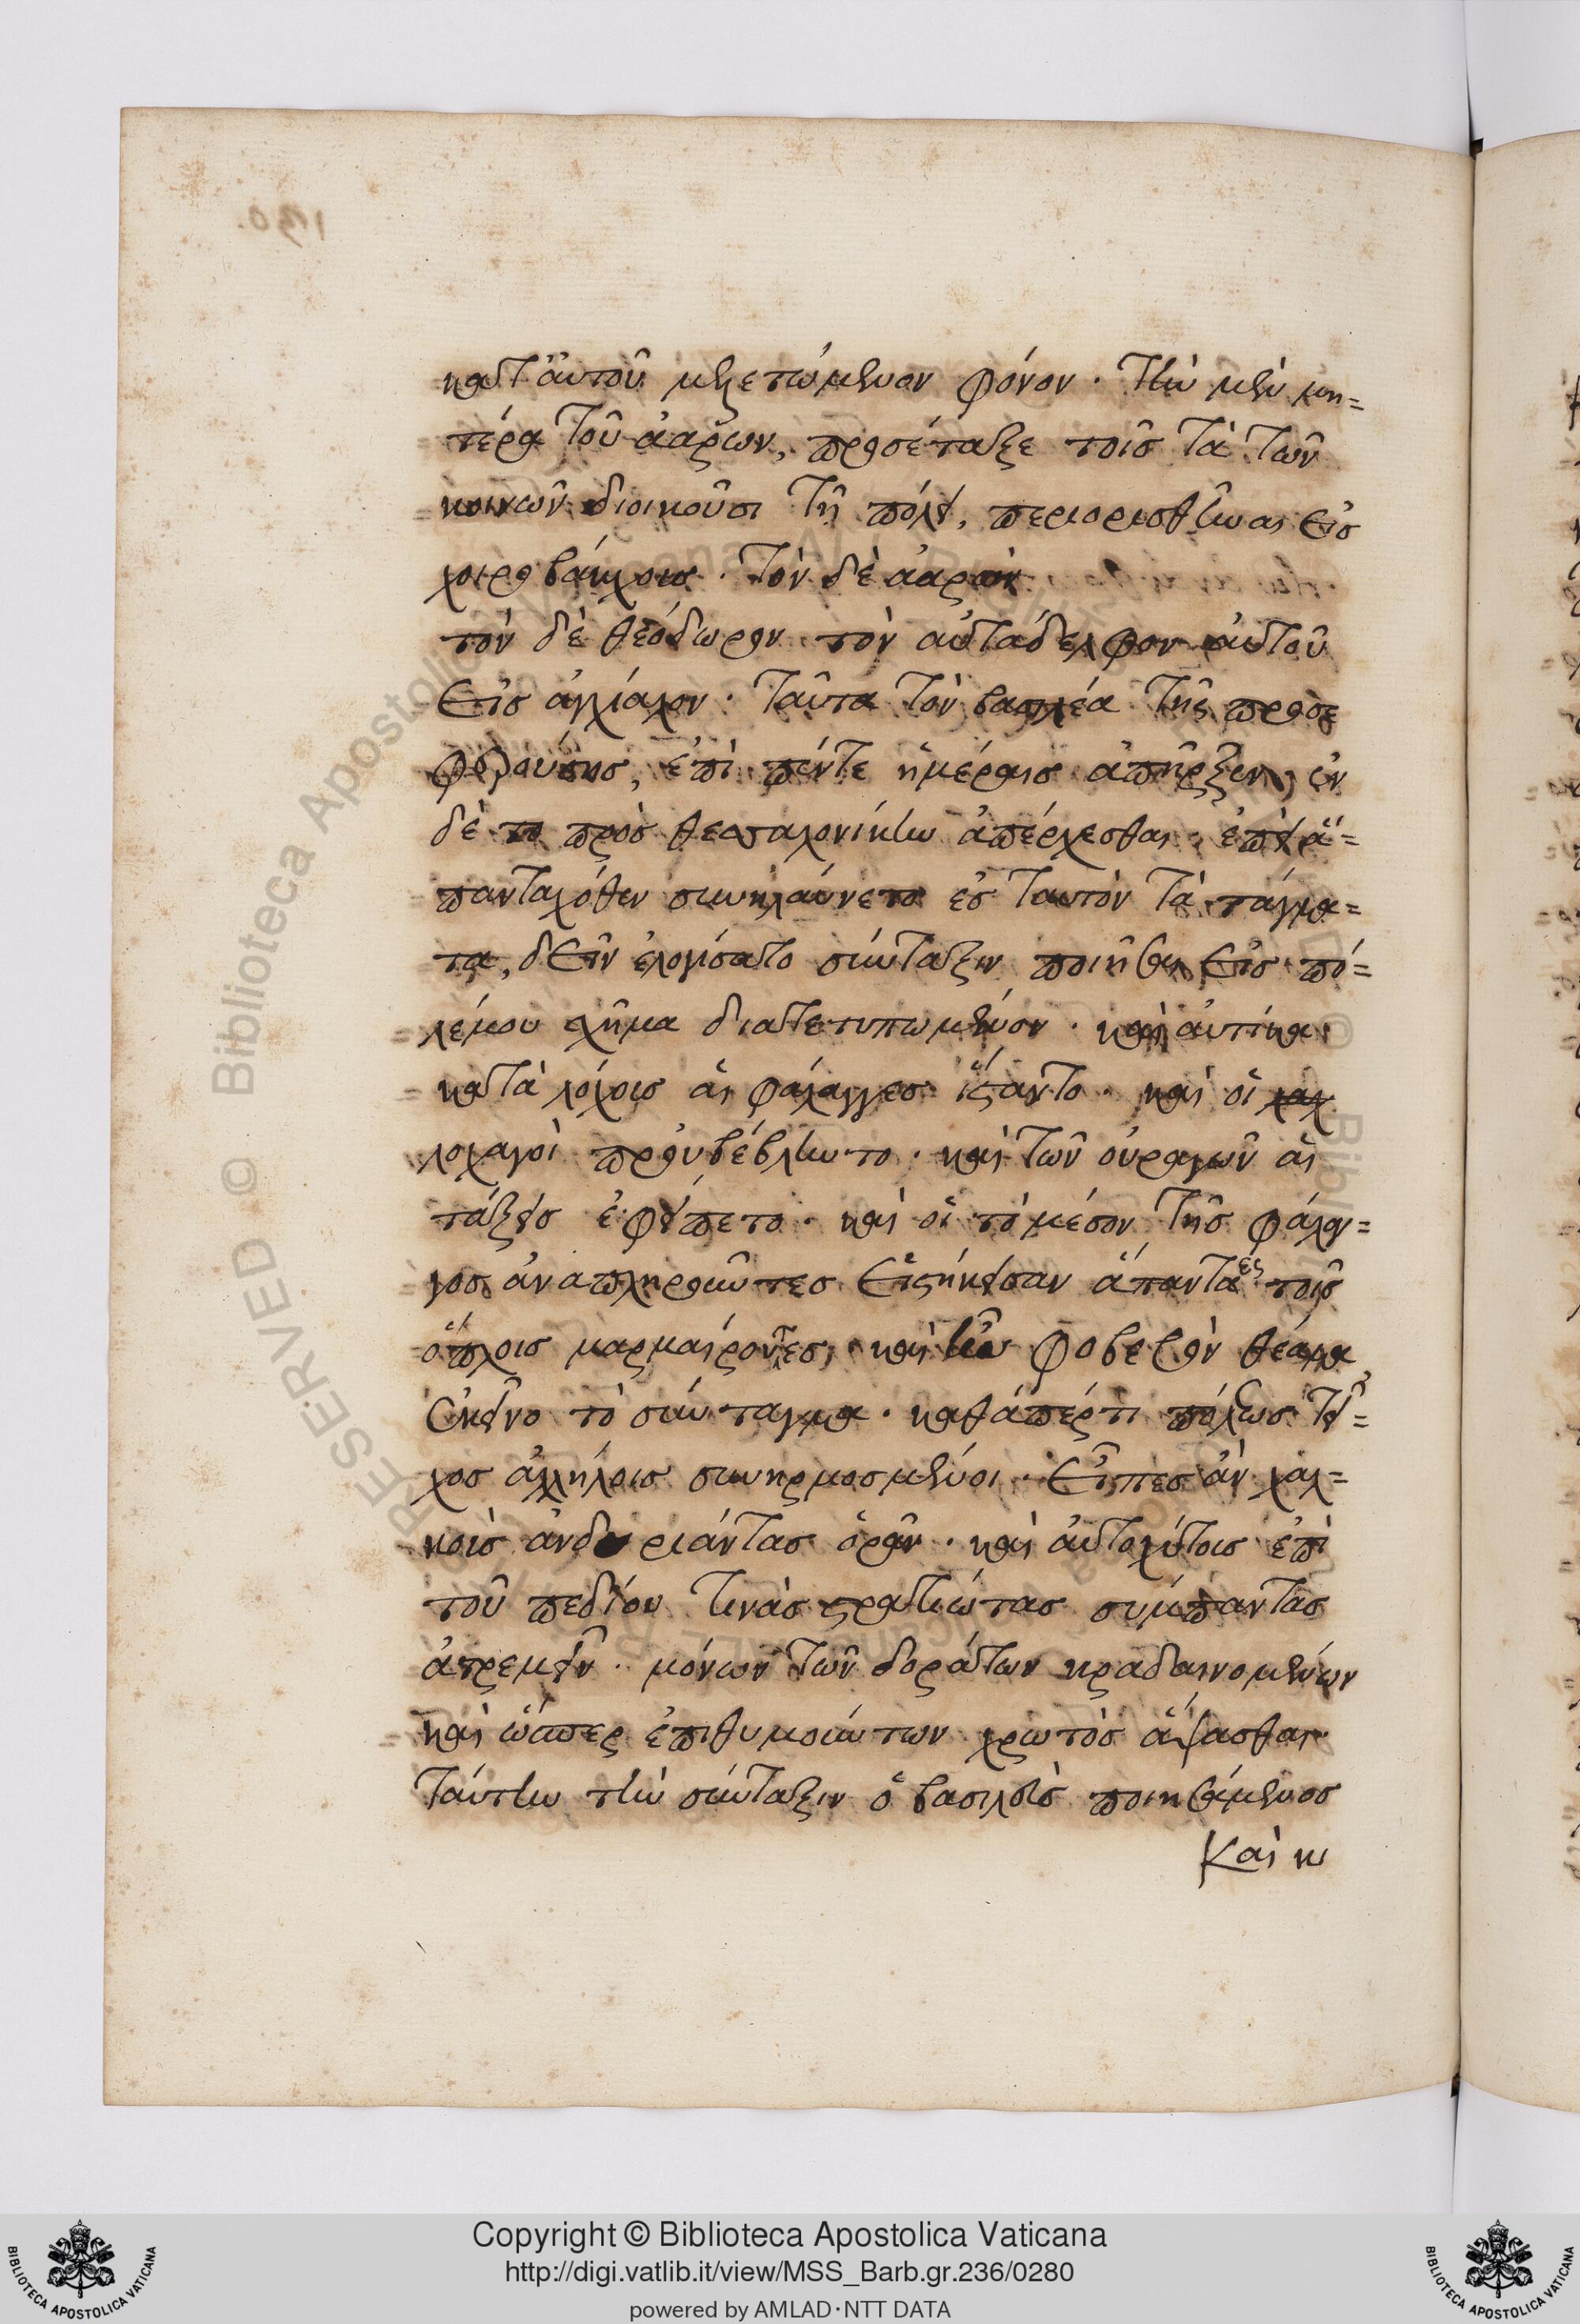 κατ' αὐτοῦ μελετώμενον φόνον. Τὴν μὲν μη=
τέρα τοῦ ἀαρὼν, προσέταξε τοῖς τὰ τῶν
κοινῶν διοικοῦσι τῇ πόλει, περιορισθῆναι εἰς
χοιροβάκχους. τὸν δὲ ἀαρὼν
τὸν δὲ θεόδωρον τὸν αὐτάδελφον αὐτοῦ
εἰς ἀγχίαλον. ταῦτα τὸν βασιλέα τῆς προσε
φελκούσης, ἐπὶ πέντε ἡμέραις ἀπῆρξεν, ἐν
δὲ τῷ πρὸς θεσσαλονίκην ἀπέρχεσθαι, ἐπεὶ ἁ=
πανταχόθεν συνηλαύνετο ἐς ταυτὸν τὰ τάγμα=
τα, δεῖν ἐλογίσατο σύνταξιν ποιῆσαι εἰς πο=
λέμου σχῆμα διατετυπωμένον. καὶ αὐτίκα
κατὰ λόχους αἱ φάλαγγες ἵσταντο. καὶ οἱ
λοχαγοὶ προὐβέβληντο. καὶ τῶν οὐραγῶν αἱ
τάξεις ἐφείπετο. καὶ οἱ τὸ μέσον τῆς φάλαγ=
γος ἀναπληροῦντες εἱστήκεισαν ἅπαντες τοῖς
ὅπλοις μαρμαίροντες. καὶ ἦν φοβερὸν θέαμα
ἐκεῖνο τὸ σύνταγμα. καθάπέρ τι πόλεως τεῖ=
χος ἀλλήλοις συνηρμοσμένοι. εἶπες ἂν χαλ=
κοῦς ἀνδριάντας ὁρᾶν. καὶ αὐτοχύτους ἐπὶ
τοῦ πεδίου τινὰς στρατιώτας σύμπαντας
ἀτρεμεῖν. μόνων τῶν δοράτων κραδαινομένων
καὶ ὥσπερ ἐπιθυμούντων χρωτὸς ἅψασθαι.
ταύτην τὴν σύνταξιν ὁ βασιλεὺς ποιησάμενος
Καὶ κι
Copyright © Biblioteca Apostolica Vaticana
http://digi.vatlib.it/view/MSS_Barb.gr.236/0280
powered by AMLAD·NTT DATA